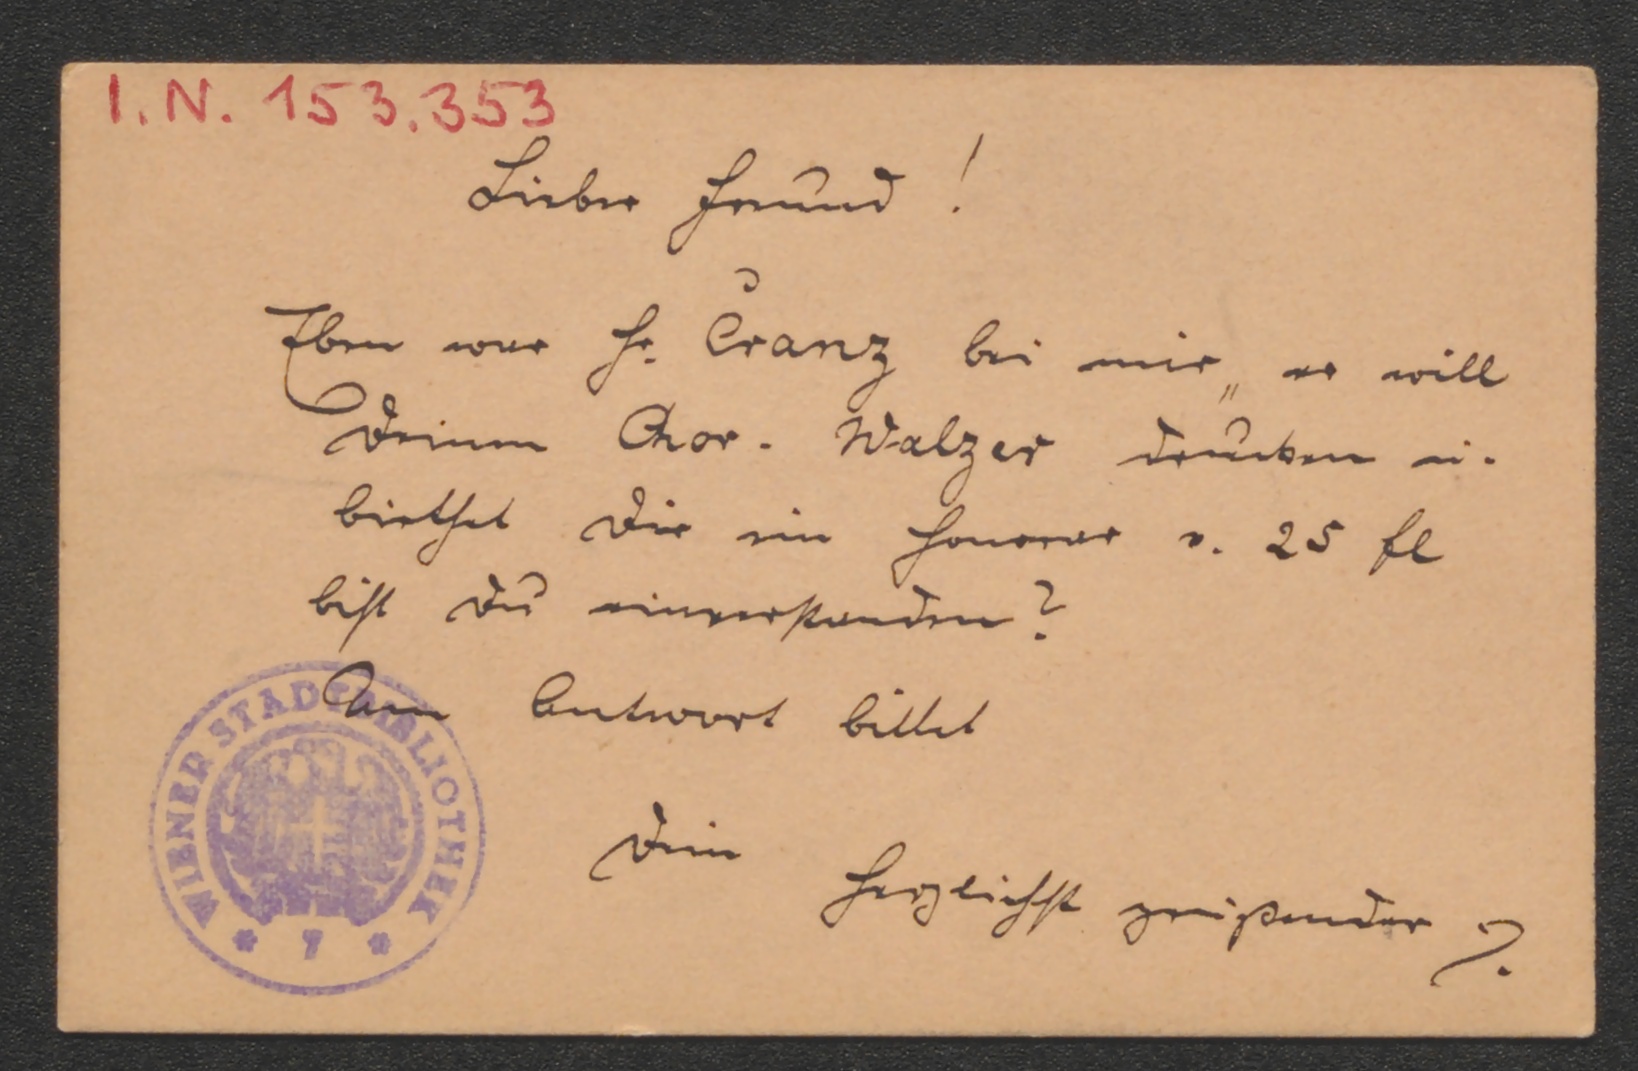 I.N. 153.353
Lieber Freund!
Eben war Hr. Cranz bei mir, er will
Deinen Chor. Walzer drucken u.
biethet Dir ein Honorar v. 25 fl
bist Du einverstanden?
Um Antwort bittet
Dein
herzlichst grüßender
WIENER STADTBIBLIOTHEK
* 7 *